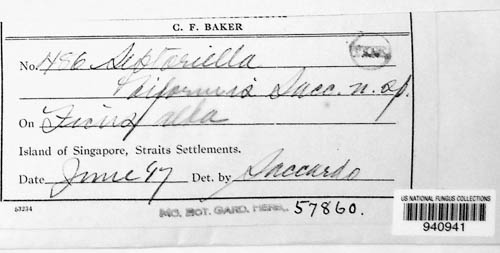 C. F. BAKER
No. 486 Septoriella
Sacc. n. sp.
On Ficus
Island of Singapore, Straits Settlements.
Date June 17 Det. by Saccardo
53234
MO. BOT. GARD. HERB. 57860.
US NATIONAL FUNGUS COLLECTIONS
940941